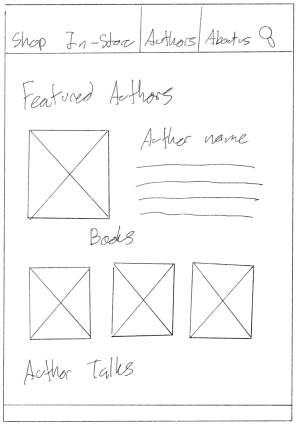 Shop In-Store Authors About us
Featured Authors
Author name
Books
Author Talks